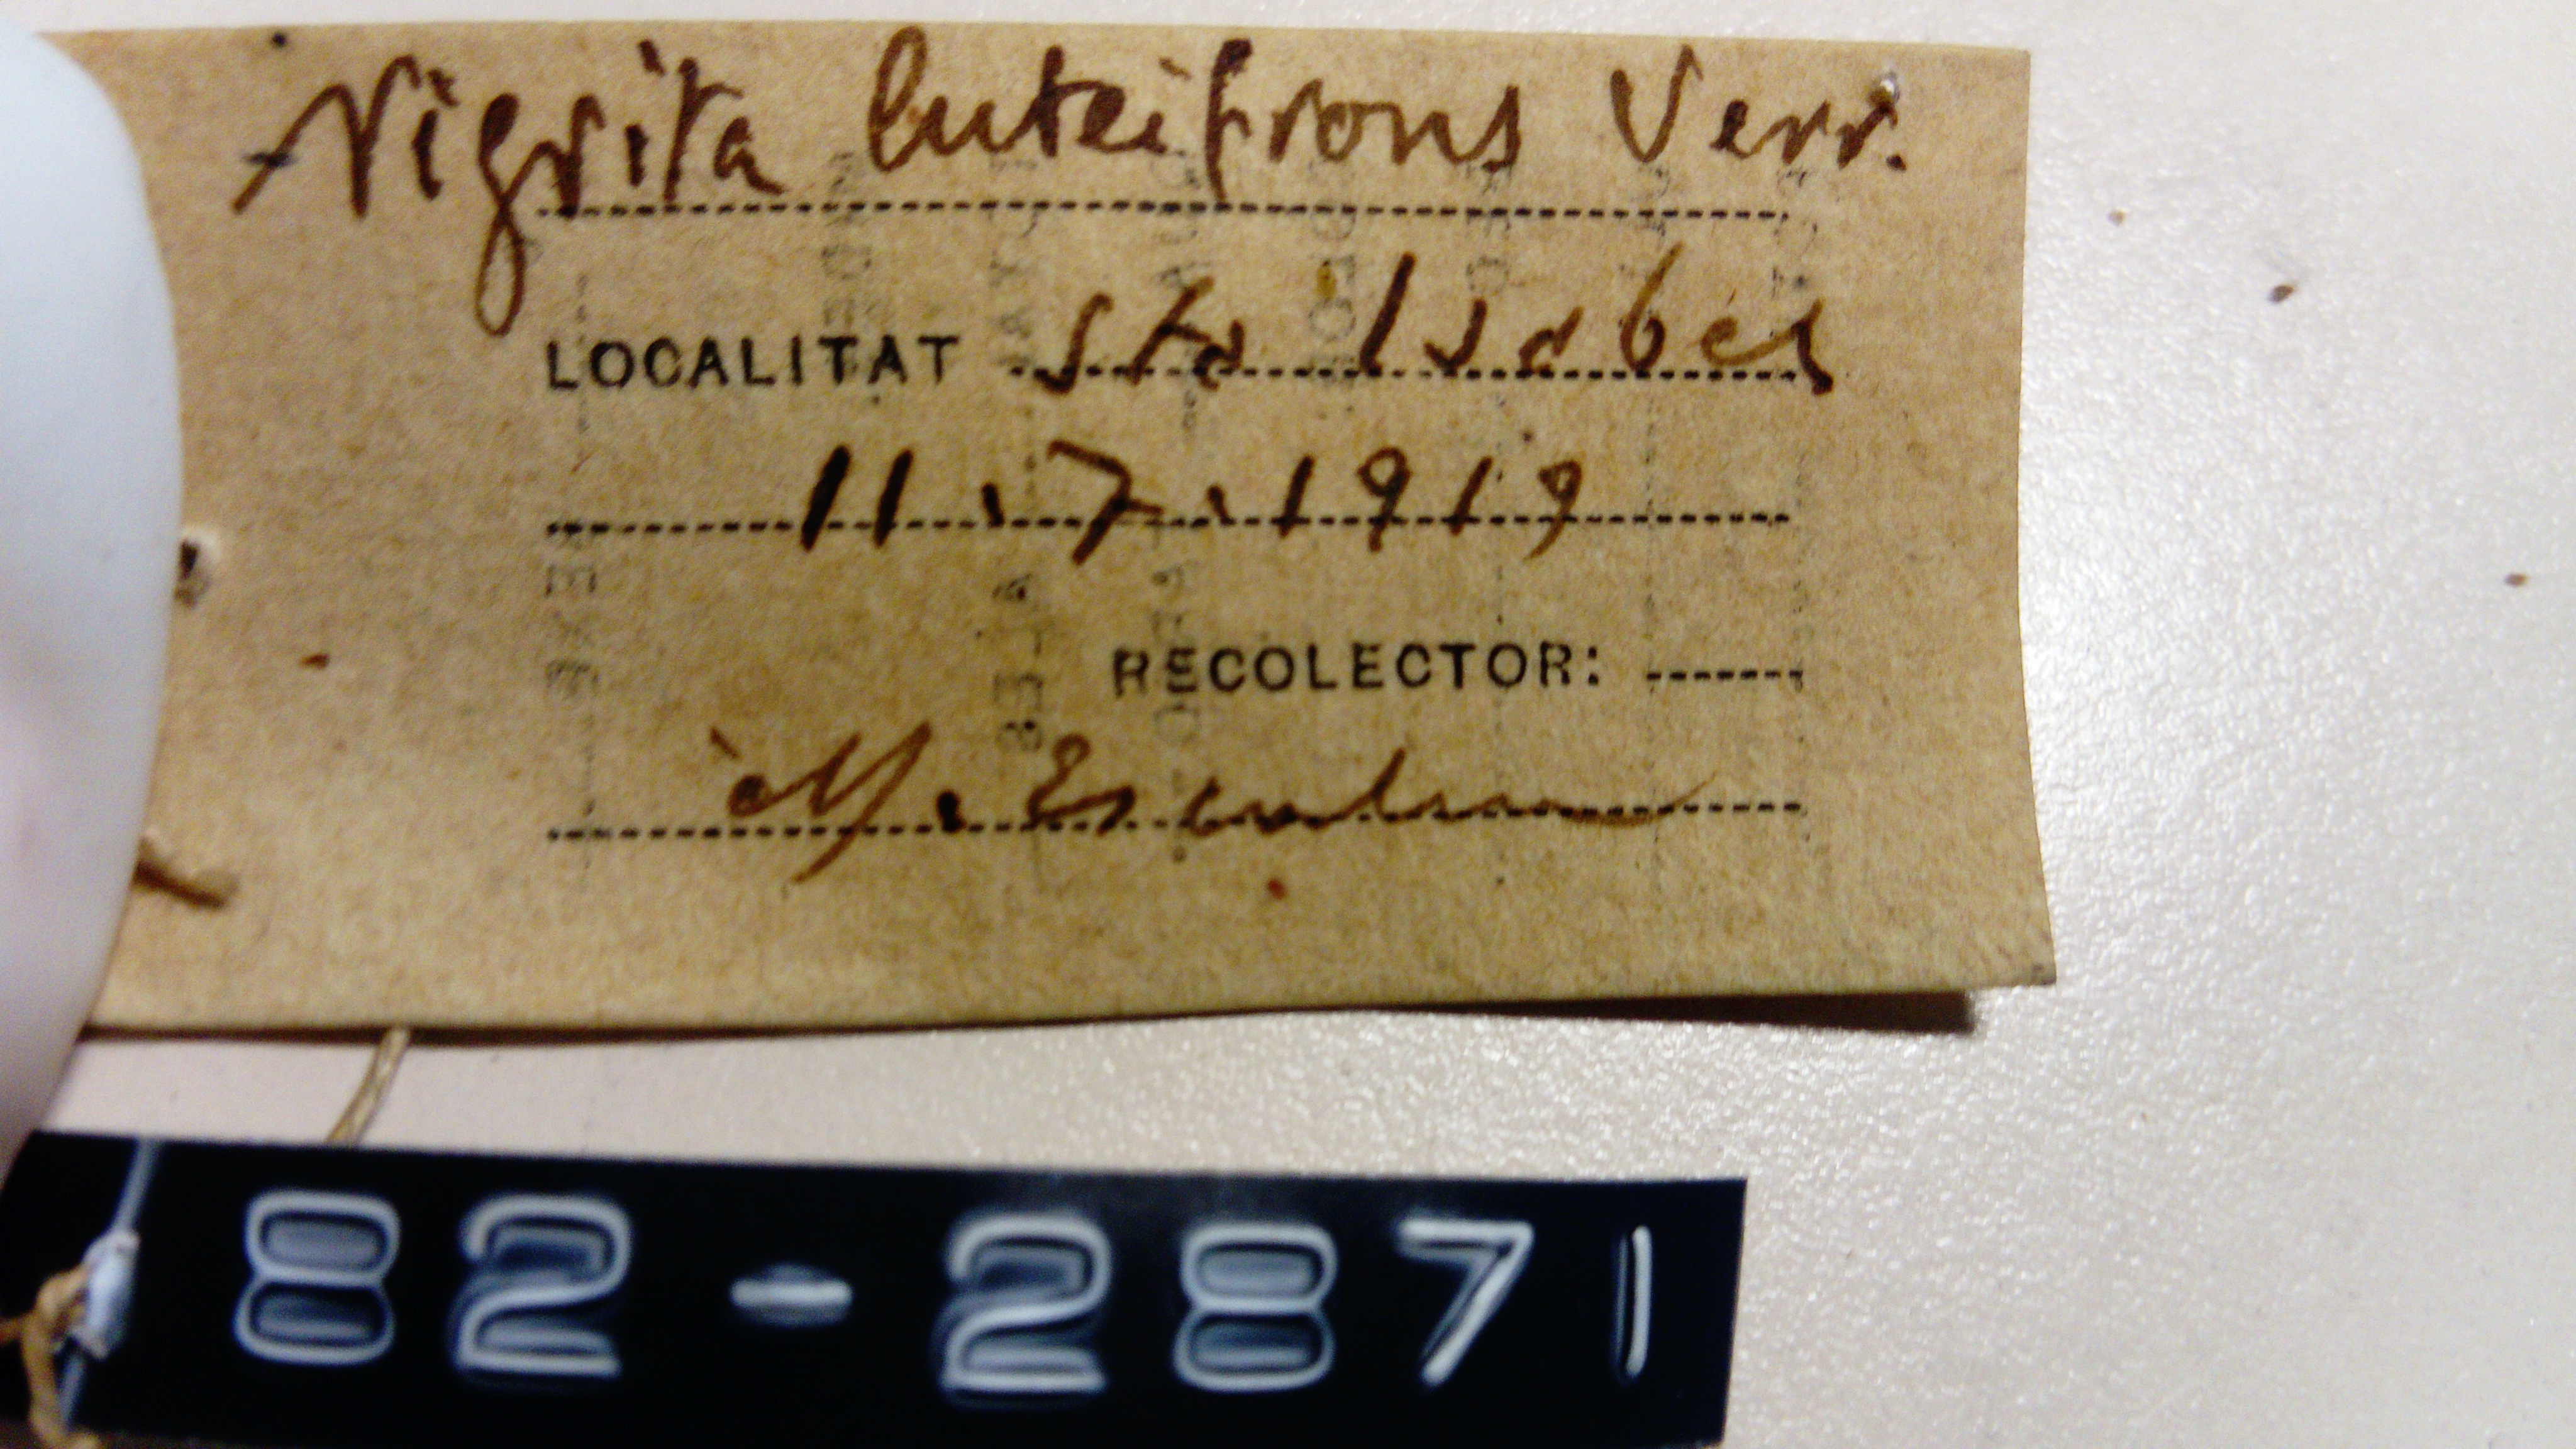 Nigrita luteifrons Verr.
LOCALITAT Sta Isabel
11.7.1919
RECOLECTOR:
M. Escalera
82-2871